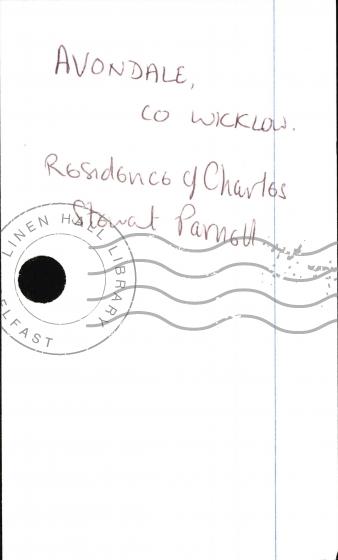 AVONDALE,
CO WICKLOW.
Residence of Charles
Stewart Parnell
LINEN HALL LIBRARY
ELFAST